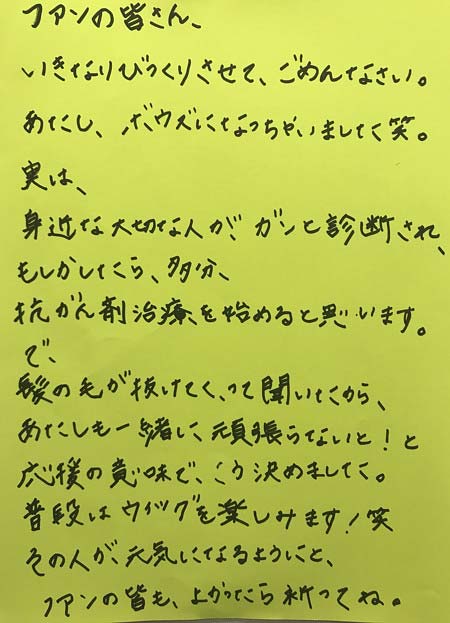 ファンの皆さん、
いきなりびっくりさせて、ごめんなさい。
あたし、ボウズになっちゃいました笑。
実は、
身近な大切な人が、ガンと診断され、
もしかしたら、多分、
抗がん剤治療を始めると思います。
で、
髪の毛が抜けてく、って聞いたから、
あたしも一緒に頑張らないと！と
応援の意味で、こう決めました。
普段はウイッグを楽しみます！笑
その人が、元気になるようにと、
ファンの皆も、よかったら祈ってね。